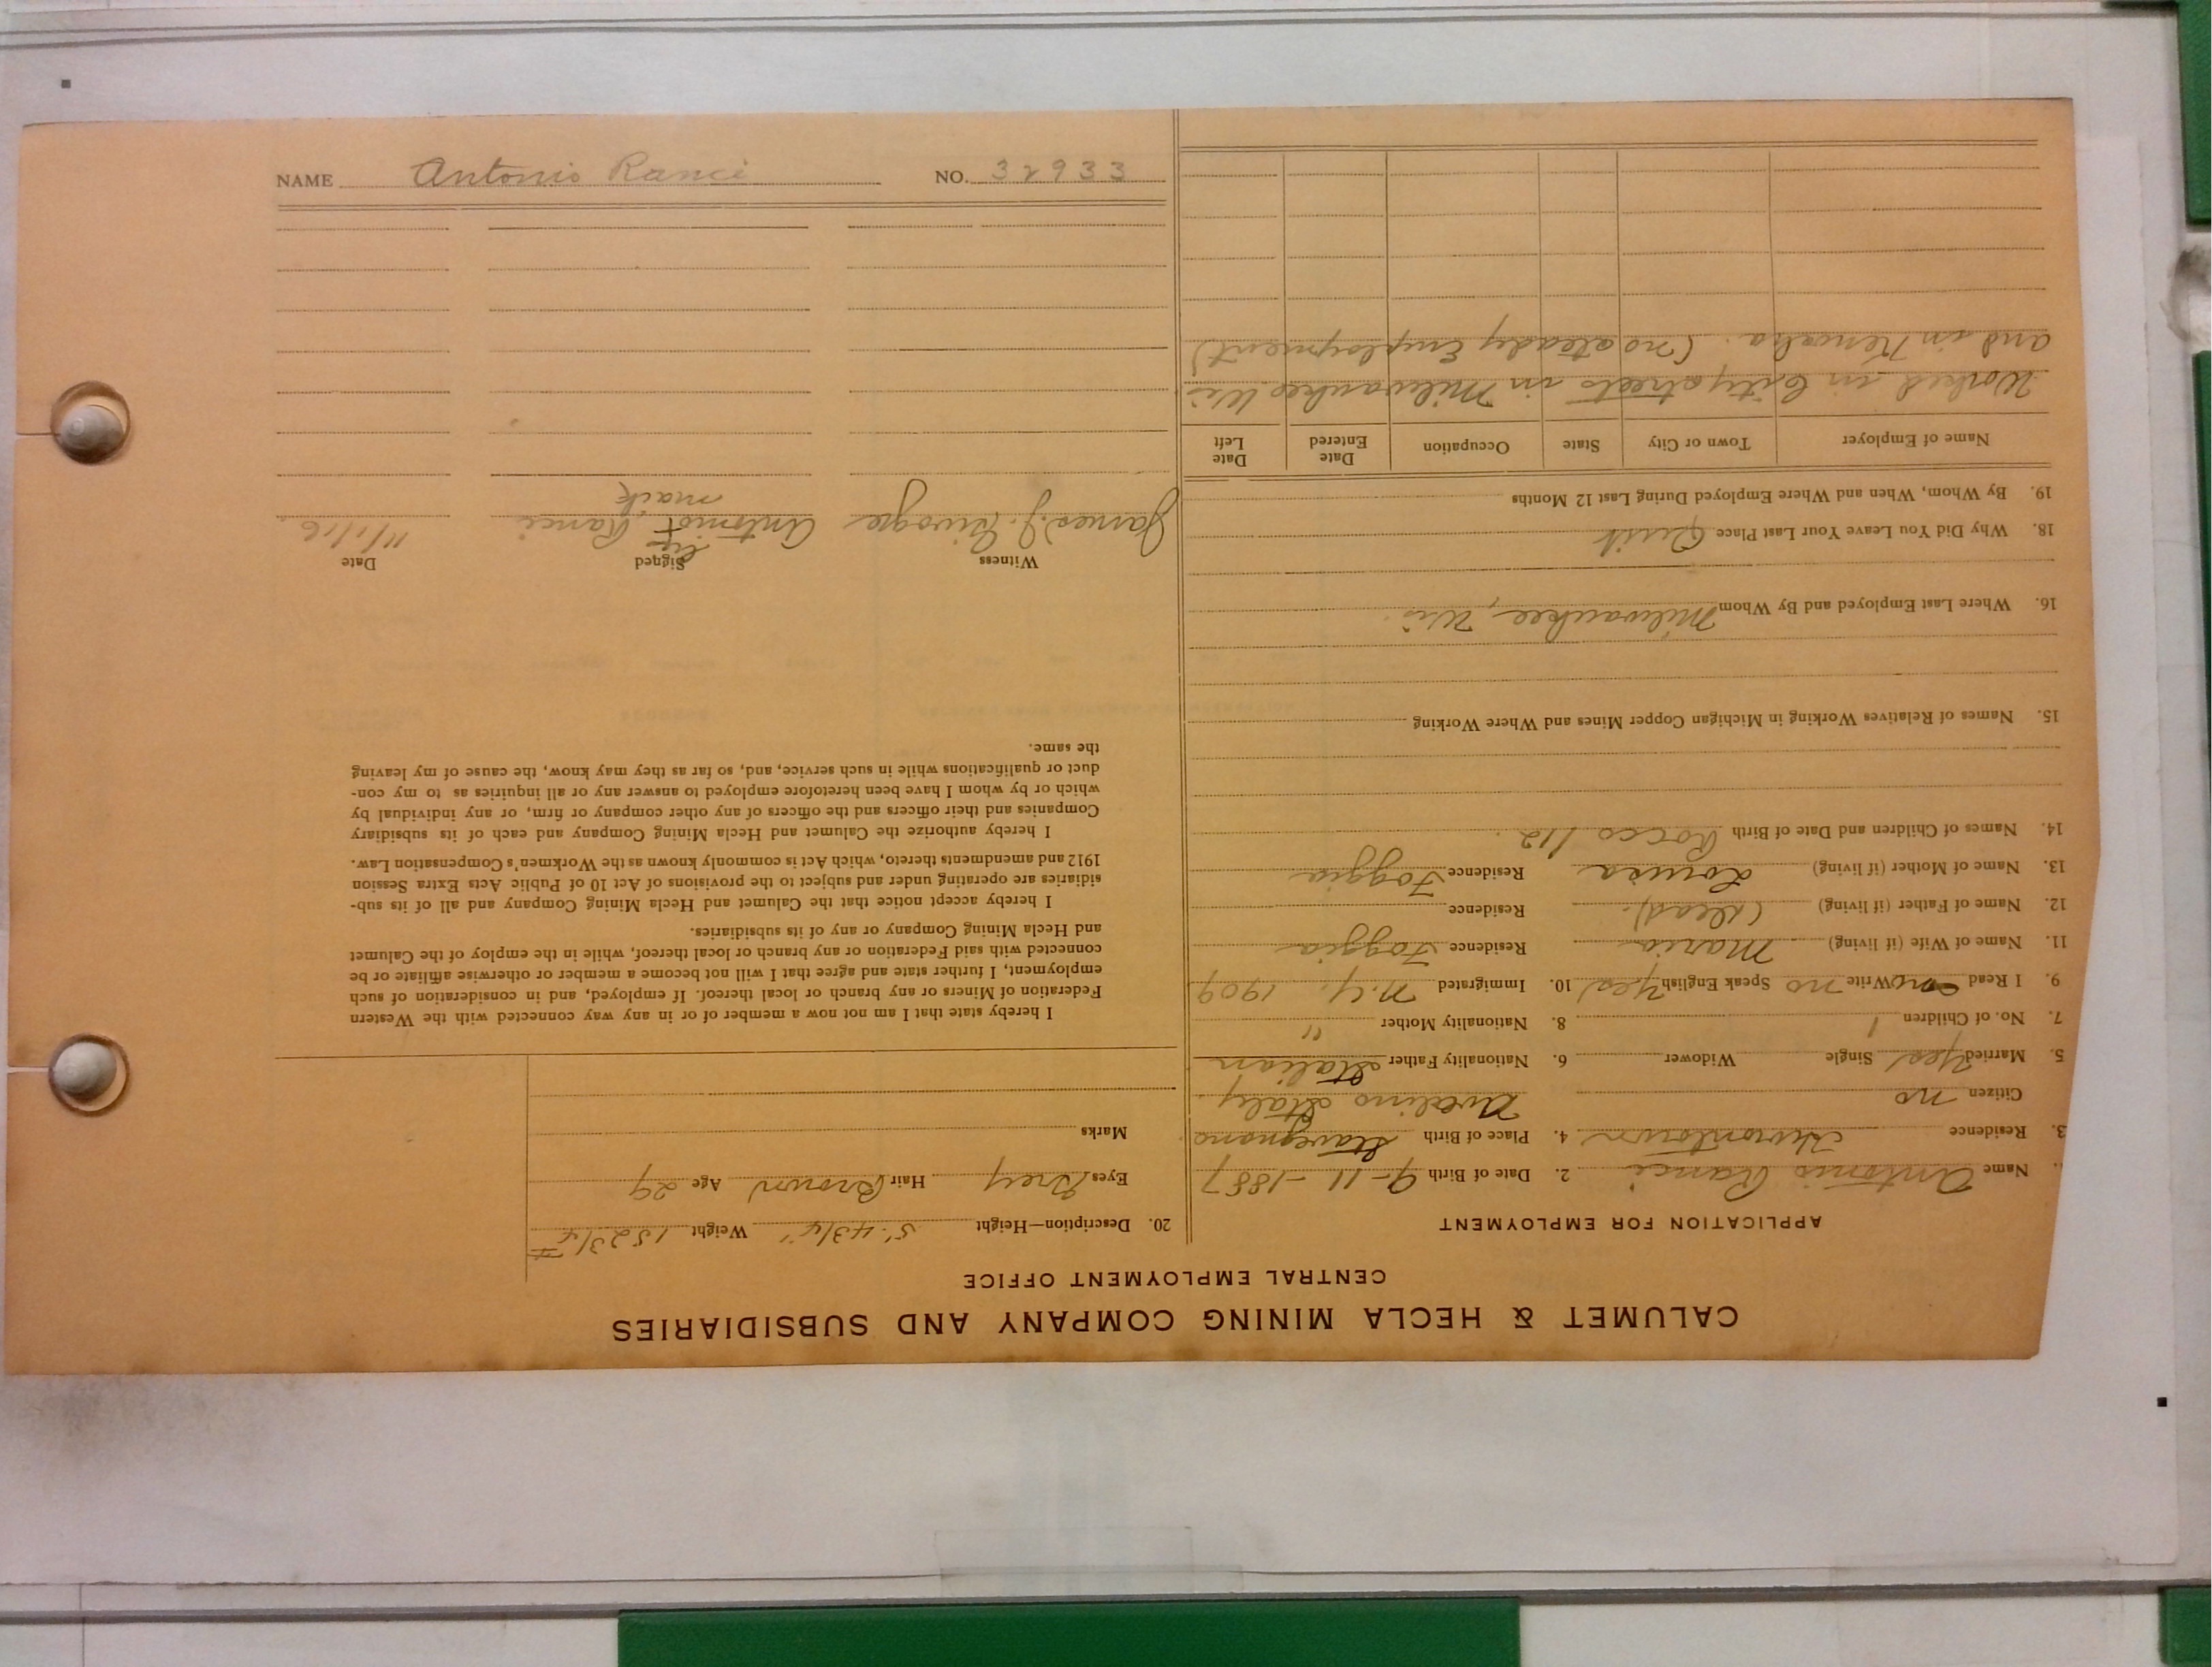 CALUMET & HECLA MINING COMPANY AND SUBSIDIARIES
CENTRAL EMPLOYMENT OFFICE
APPLICATION FOR EMPLOYMENT
Name Antonio Ranci 2. Date of Birth 9-11-1887
3. Residence Hurontown 4. Place of Birth
Citizen no Avelino Italy
5. Married Yes Single Widower 6. Nationality Father Italian
7. No. of Children 1 8. Nationality Mother "
9. I Read Write no Speak English Yes 10. Immigrated N.Y. 1909
11. Name of Wife (if living) Maria Residence Foggia
12. Name of Father (if living) (Dead). Residence
13. Name of Mother (if living) Louisa Residence Foggia
14. Names of Children and Date of Birth Rocco 1/12.
15. Names of Relatives Working in Michigan Copper Mines and Where Working
16. Where Last Employed and By Whom Milwaukee, Wis
18. Why Did You Leave Your Last Place Quit
19. By Whom, When and Where Employed During Last 12 Months
Name of Employer Town or City State Occupation Date Entered Date Left
Worked in City streets in Milwaukee Wis
and in Kenosha. (no steady Employment)
20. Description—Height 5' 4 3/4" Weight 152 3/4 #
Eyes Grey Hair Brown Age 29
Marks
I hereby state that I am not now a member of or in any way connected with the Western
Federation of Miners or any branch or local thereof. If employed, and in consideration of such
employment, I further state and agree that I will not become a member or otherwise affiliate or be
connected with said Federation or any branch or local thereof, while in the employ of the Calumet
and Hecla Mining Company or any of its subsidiaries.
I hereby accept notice that the Calumet and Hecla Mining Company and all of its sub-
sidiaries are operating under and subject to the provisions of Act 10 of Public Acts Extra Session
1912 and amendments thereto, which Act is commonly known as the Workmen's Compensation Law.
I hereby authorize the Calumet and Hecla Mining Company and each of its subsidiary
Companies and their officers and the officers of any other company or firm, or any individual by
which or by whom I have been heretofore employed to answer any or all inquiries as to my con-
duct or qualifications while in such service, and, so far as they may know, the cause of my leaving
the same.
Witness Signed Date
James J. Antonio Ranci 11/1/16
mark
NAME Antonio Ranci NO. 32933